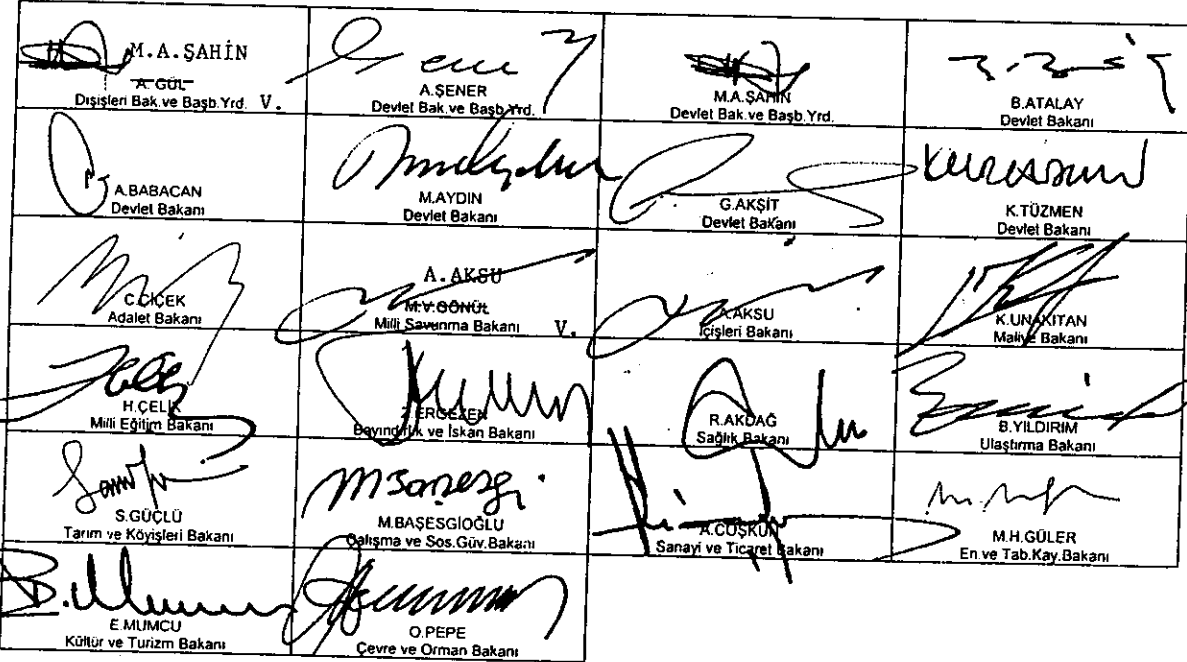 M.A.ŞAHİN
A.GÜL
Dışişleri Bak.ve Başb.Yrd. V.
A.ŞENER
Devlet Bak.ve Başb.Yrd.
M.A.ŞAHİN
Devlet Bak.ve Başb.Yrd.
B.ATALAY
Devlet Bakanı
A.BABACAN
Devlet Bakanı
M.AYDIN
Devlet Bakanı
G.AKŞİT
Devlet Bakanı
K.TÜZMEN
Devlet Bakanı
C.ÇİÇEK
Adalet Bakanı
A.AKSU
M.V.GÖNÜL
Milli Savunma Bakanı V.
A.AKSU
İçişleri Bakanı
K.UNAKITAN
Maliye Bakanı
H.ÇELİK
Milli Eğitim Bakanı
Z.ERGEZEN
Bayındırlık ve İskan Bakanı
R.AKDAĞ
Sağlık Bakanı
B.YILDIRIM
Ulaştırma Bakanı
S.GÜÇLÜ
Tarım ve Köyişleri Bakanı
M.BAŞESGİOĞLU
Çalışma ve Sos.Güv.Bakanı
A.COŞKUN
Sanayi ve Ticaret Bakanı
M.H.GÜLER
En.ve Tab.Kay.Bakanı
E.MUMCU
Kültür ve Turizm Bakanı
O.PEPE
Çevre ve Orman Bakanı